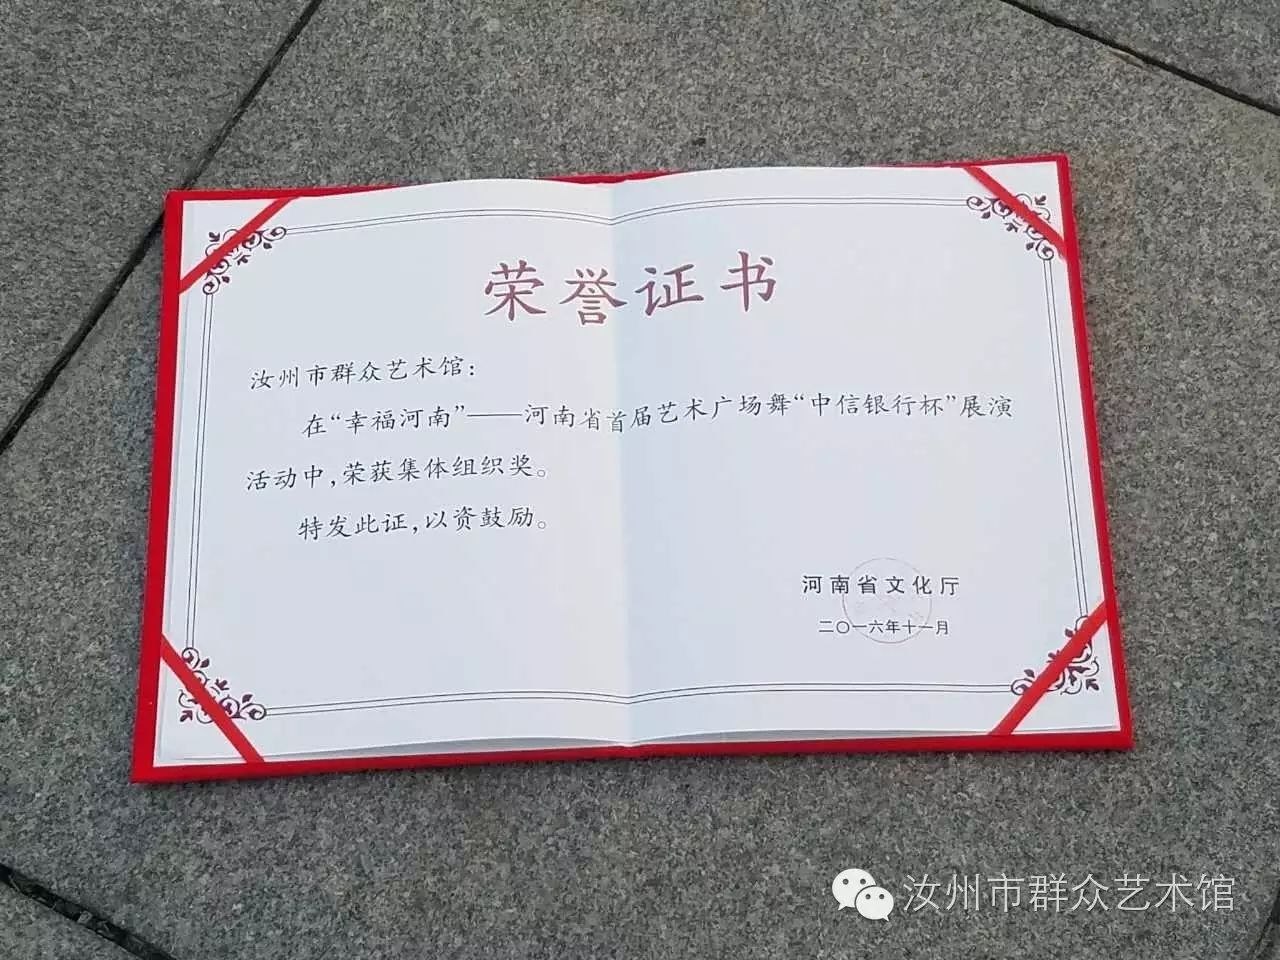 荣誉证书
汝州市群众艺术馆：
在“幸福河南”——河南省首届艺术广场舞“中信银行杯”展演
活动中，荣获集体组织奖。
特发此证，以资鼓励。
河南省文化厅
二〇一六年十一月
汝州市群众艺术馆